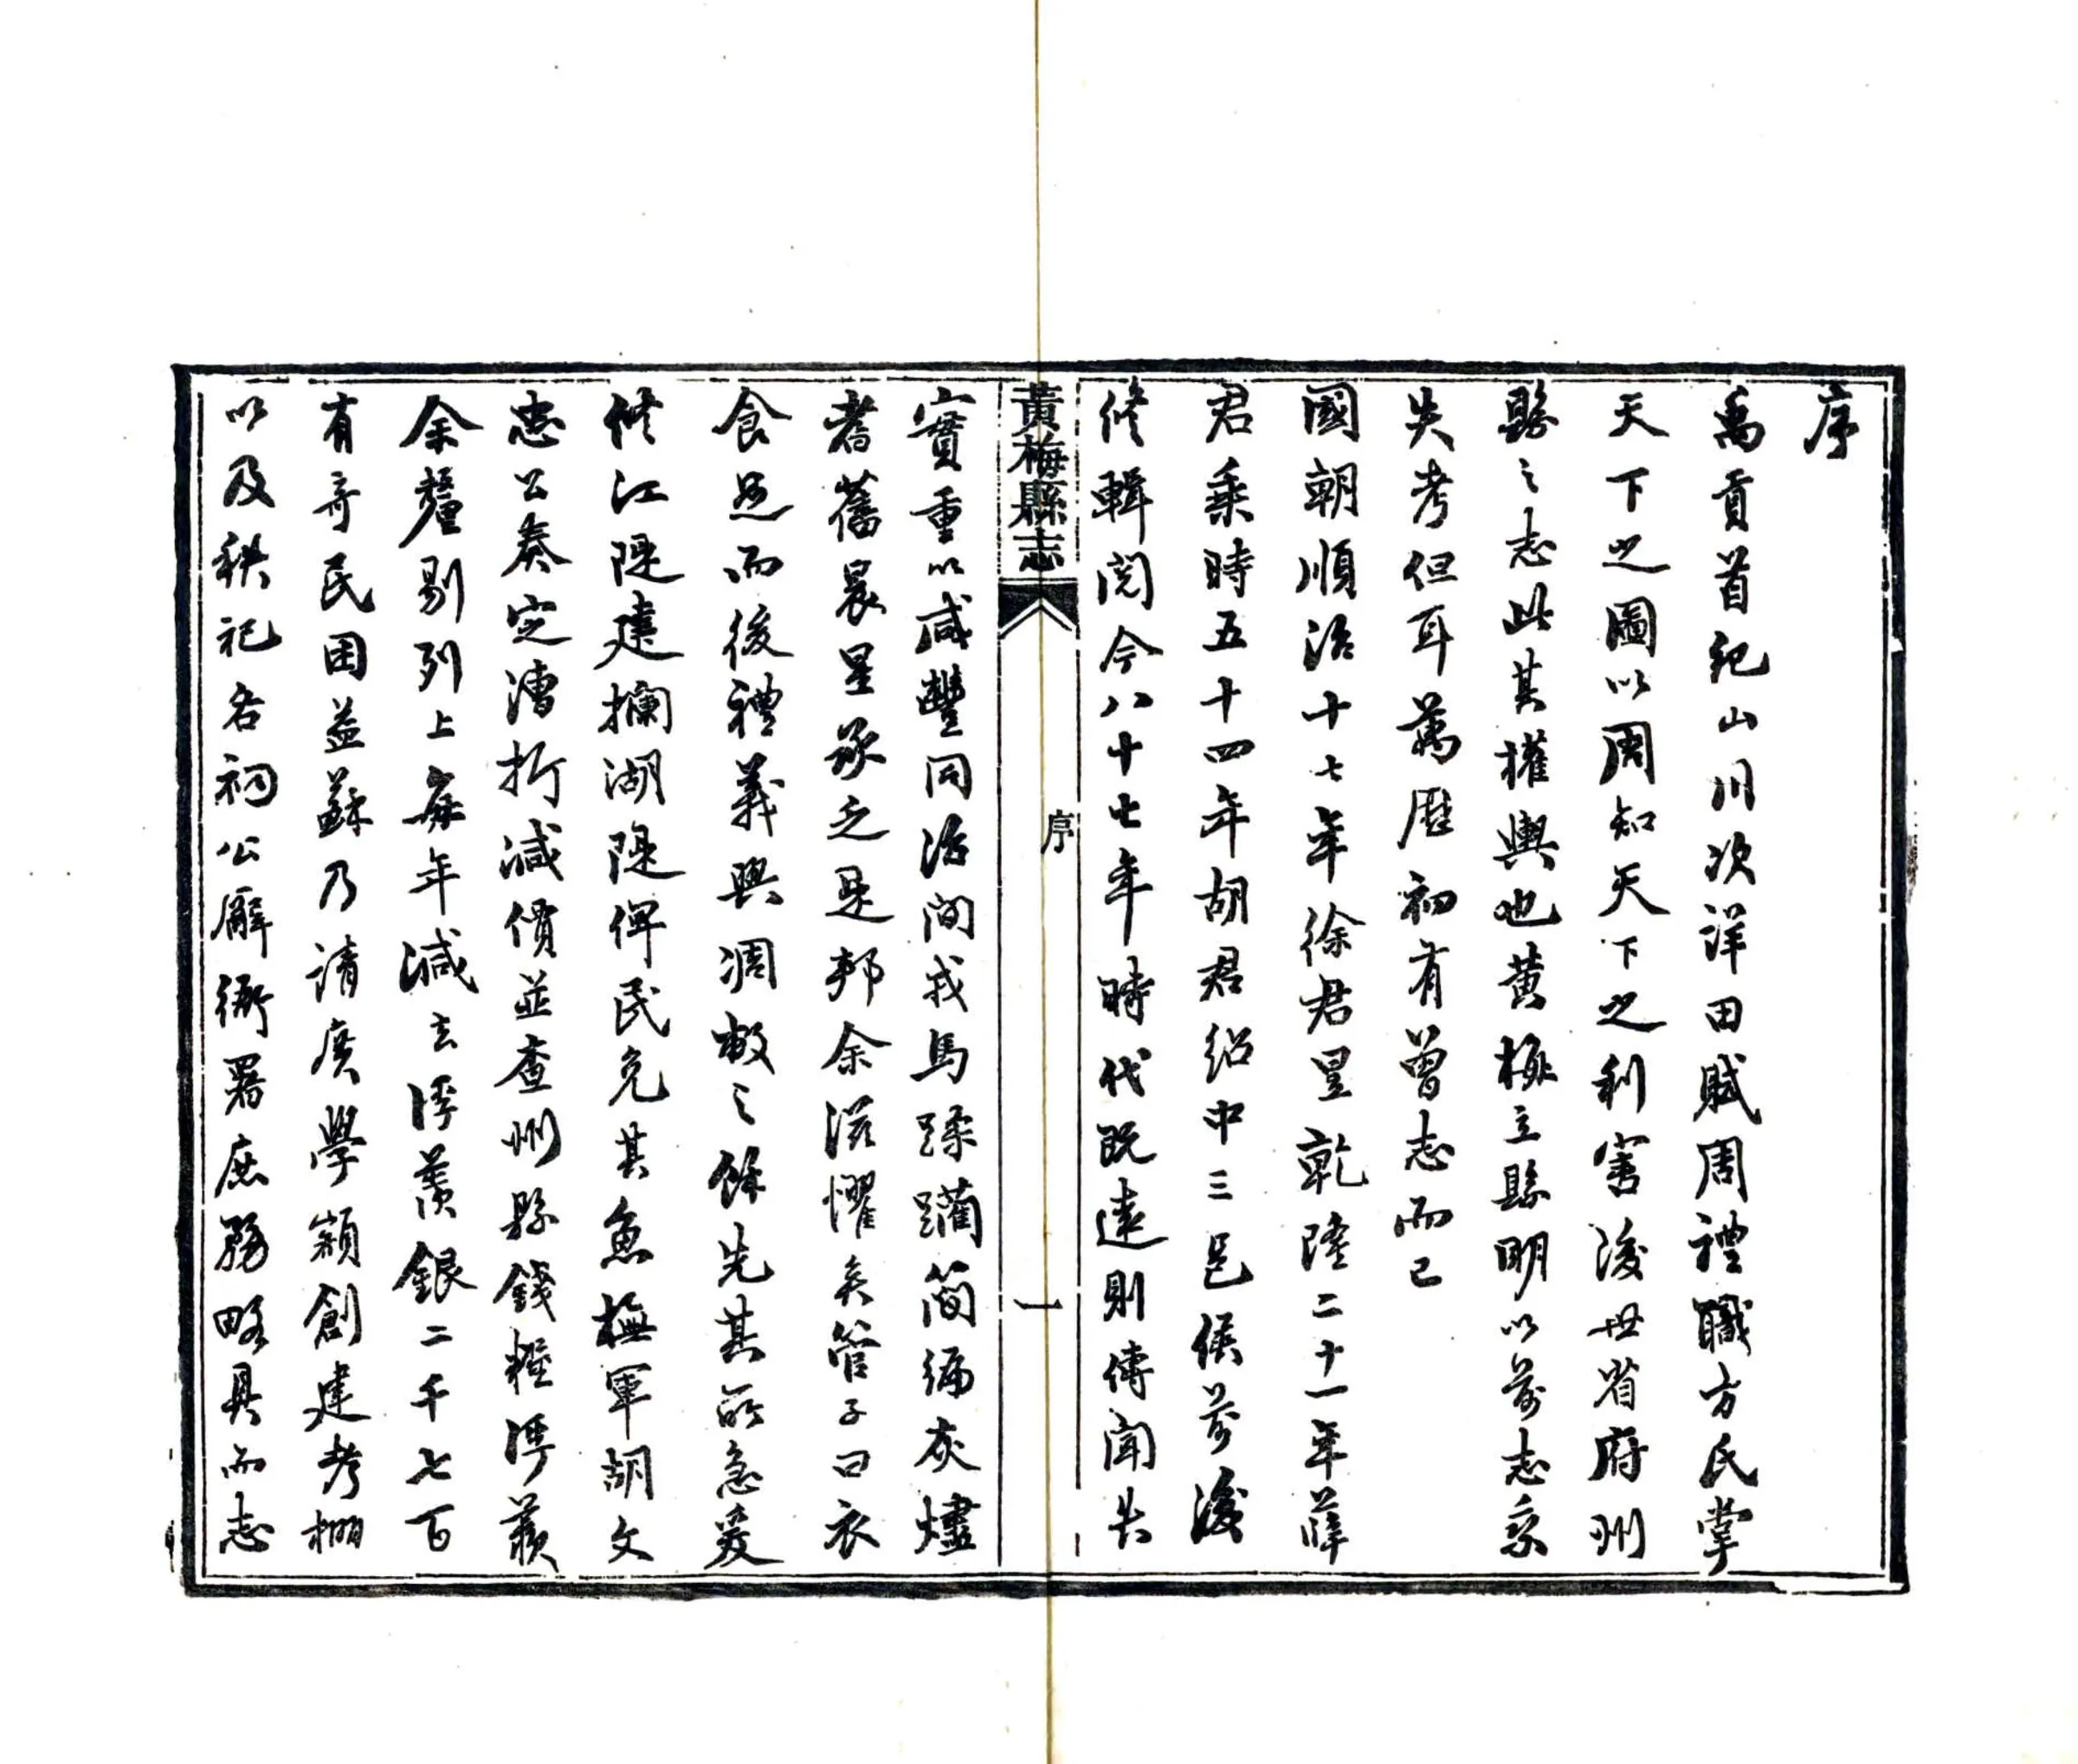 序
禹貢首紀山川次詳田賦周禮職方氏掌
天下之圖以周知天下之利害後世省府州
縣之志此其權輿也黄梅立縣明以前志乘
失考但耳萬歷初有曾志而已
國朝順治十七年徐君昱乾隆二十一年薛
君乘時五十四年胡君紹中三邑侯前後
修輯閱今八十七年時代既遠則傳聞失
黃梅縣志
序
一
實重以咸豐同治間戎馬蹂躪簡編灰燼
耆舊晨星承乏是邦余滋懼矣管子曰衣
食足而後禮義興凋敝之餘先其所急爰
修江隄建攔湖隄俾民免其魚撫軍胡文
忠公奏定漕折減價並查州縣錢糧浮羨
余釐剔列上每年減去浮羨銀二千七百
有奇民困益蘇乃請廣學額創建考棚
以及秩祀各祠公廨衙署庶務略具而志